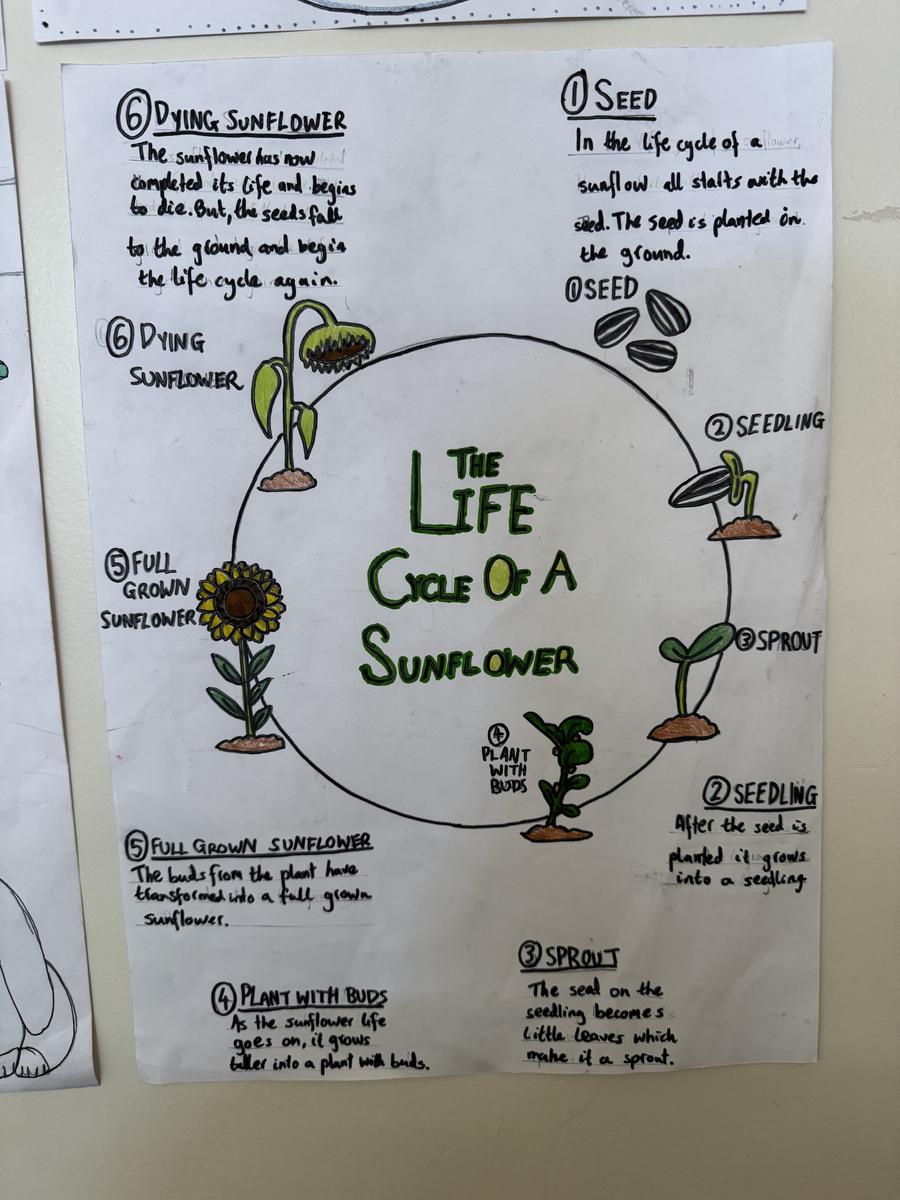 ⑥ DYING SUNFLOWER
The sunflower has now
completed its life and begins
to die. But, the seeds fall
to the ground and begin
the life cycle again.
① SEED
In the life cycle of a
sunflow all statts with the
seed. The seed is planted in
the ground.
① SEED
⑥ DYING
SUNFLOWER
② SEEDLING
THE
LIFE
CYCLE OF A
SUNFLOWER
⑤ FULL
GROWN
SUNFLOWER
③ SPROUT
④
PLANT
WITH
BUDS
② SEEDLING
After the seed is
planted it grows
into a seedling
⑤ FULL GROWN SUNFLOWER
The buds from the plant have
transformed into a full grown
sunflower.
③ SPROUT
The seed on the
seedling becomes
little leaves which
make it a sprout.
④ PLANT WITH BUDS
As the sunflower life
goes on, it grows
taller into a plant with buds.